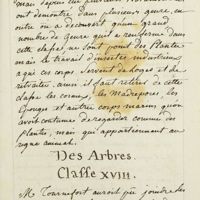 mais depuis plusieurs
ont demontré dans plusieurs ouvra, en
outre on a decouvert qu'un grand
nombre de Genre qu'il a renfermé dans
cette classe ne sont point des Plantes
mais le travail d'insectes industrieux
a qui ces corps servent de loges et de
retraites, ainsi il faut retirer de cette
classe les coraux, les madrepores les
Eponges et autres corps marins qu'on
avoit coutume de regarder comme des
Plantes, mais qui appartiennent au
regne animal.
Des Arbres.
Classe XVIII.
M Tournefort auroit pu joindre les